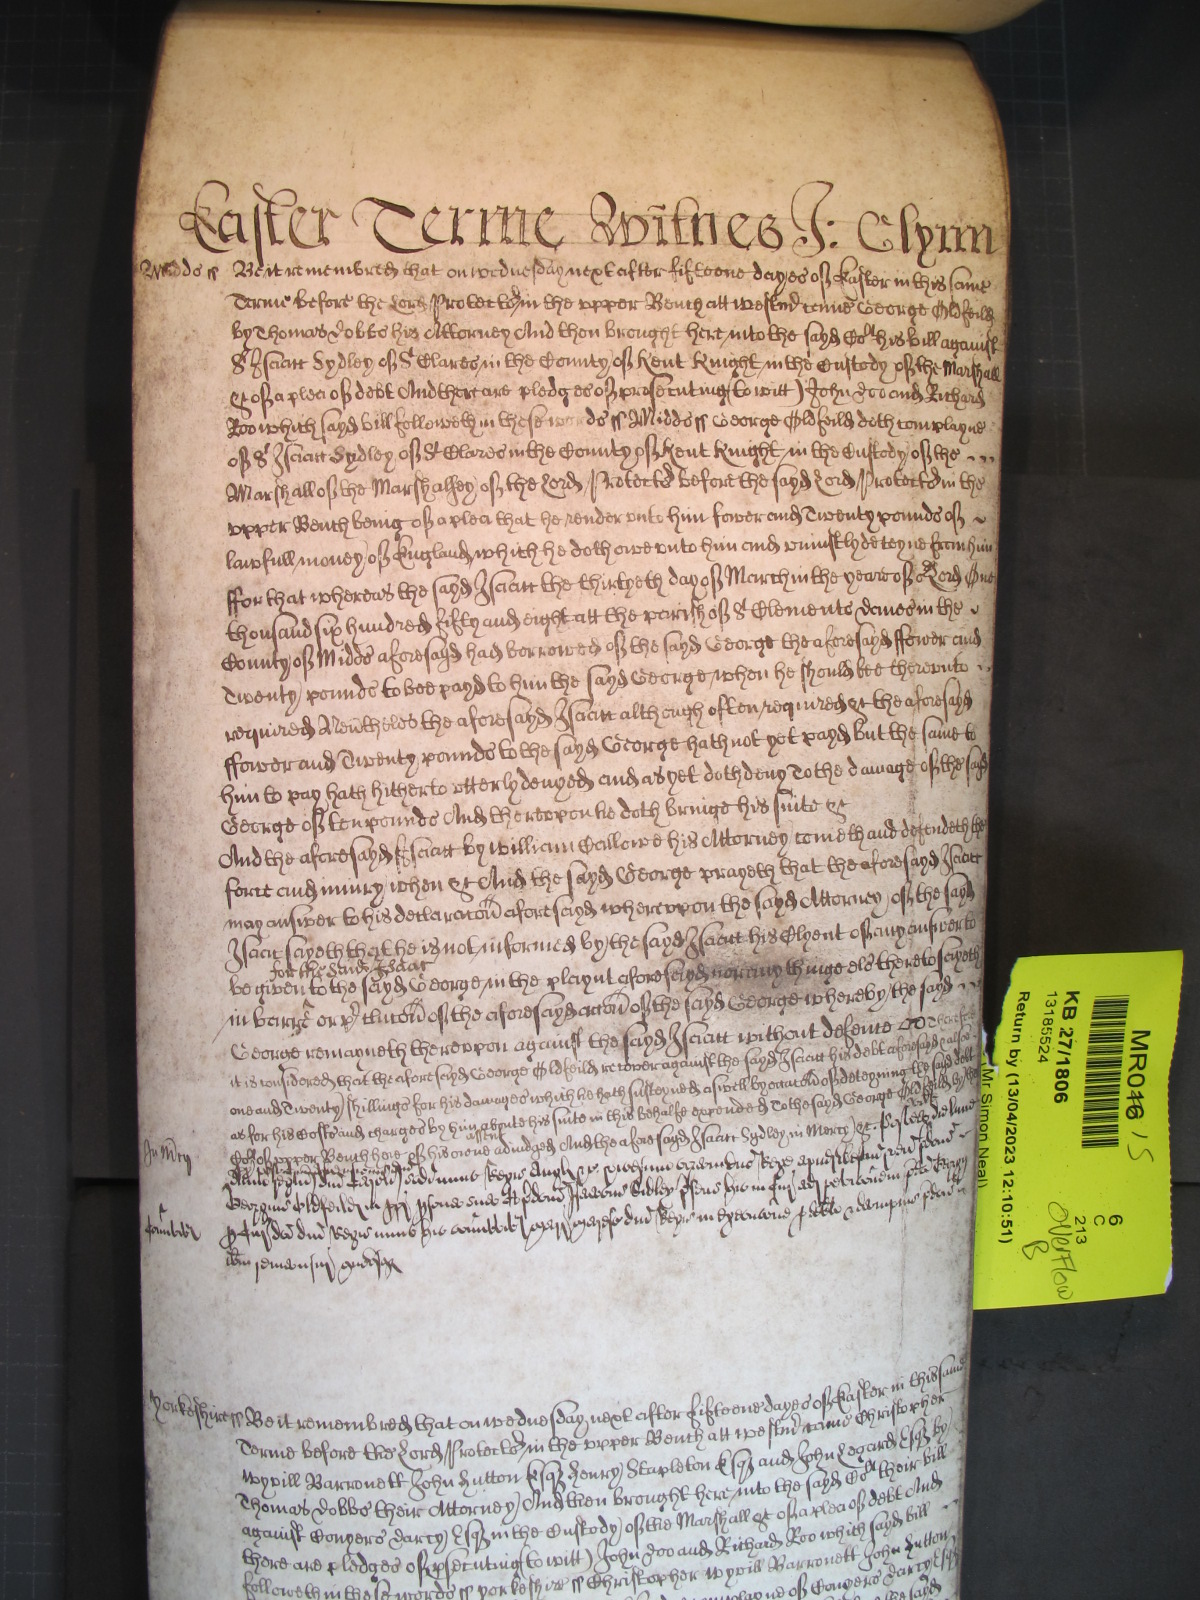 Easter Terme Witnes J: Glynn
Midds ss Be it remembred that on wednesday next after fifteene dayes of Easter in this same
Terme before the Lord Protector in the upper Bench att Westmr came George Oldfeild
by Thomas Dobbs his Attorney And then brought here into the sayd Cort his bill against
Sr Isaac Sydley of St Clares in the County of Kent Knight in the Custody of the Marshall
&c of a plea of debt And there are pledges of prosecuting (to witt) John Doo and Richard
Roo which sayd bill followeth in these words ss Midds ss George Oldfeild doth complayne
of Sr Isaac Sydley of St Clares in the County of Kent Knight in the Custody of the
Marshall of the Marshalsey of the Lord Protector before the sayd Lord Protector in the
upper Bench being of a plea that he render unto him fower and Twenty pounds of
lawfull money of England which he doth owe unto him and uniustly deteyne from him
ffor that whereas the sayd Isaac the thirtyeth day of March in the yeare of or Lord One
thousand six hundred fifty and eight att the parish of St Clements Danes in the
County of Midds aforesayd had borrowed of the sayd George the aforesayd ffower and
Twenty pounds to bee payd to him the sayd George when he should bee thereunto
required Nevtheles the aforesayd Isaac although often required &c the aforesayd
ffower and Twenty pounds to the sayd George hath not yet payd but the same to
him to pay hath hitherto utterly denyed and as yet doth deny To the damage of the sayd
George of ten pounds And thereupon he doth bringe his suite &c
And the aforesayd Isaac by William Callowe his Attorney cometh and defendeth the
force and iniury when &c And the sayd George prayeth that the aforesayd Isaac
may answer to his declaracon aforesayd whereupon the sayd Attorney of the sayd
Isaac sayeth that he is not informed by the sayd Isaac his Clyent of any answer to
for the said Isaac
be given to the sayd George in the playnt aforesayd nor any thinge els thereto sayeth
in barre or of the aforesayd accon of the sayd George whereby the sayd
George remayneth thereupon against the sayd Isaac without defence &c Therefore
it is considered that the aforesayd George Oldfeild recover against the sayd Isaac his debt aforesayd & alsoe
one and Twenty shillings for his damages which he hath susteyned aswell by occasion of deteyning the sayd debt
as for his Costs and charges by him about his suite in this behalfe expended To the sayd George Oldfeild by the
assent
Cort of upper Bench here of his owne adiudged And the aforesayd Isaac Sydley in Mercy &c
In Mcy
Georgius Oldfeild
Yorkeshire ss Be it remembred that on wednesday next after fifteene dayes of Easter in this same
Terme before the Lord Protector in the upper Bench att Westmr came Christopher
Wyvill Barronett John Hutton Esqr Henry Stapleton Esqr and John Legard Esqr by
Thomas Dobbs their Attorney And then brought here into the sayd Cort their bill
against Conyers Darcy Esqr in the Custody of the Marshall &c of a plea of debt And
there are pledges of psecuting (to witt) John Doo and Richard Roo which sayd bill
followeth in these words ss Yorkeshire ss Christopher Wyvill Barronett John Hutton
complayne of Conyers Darcy Esqr
MR046 15
KB 27/1806
13185524
Return by (13/04/2023 12:10:51)
(Mr Simon Neal)
6
C
213
OVERFLOW
B